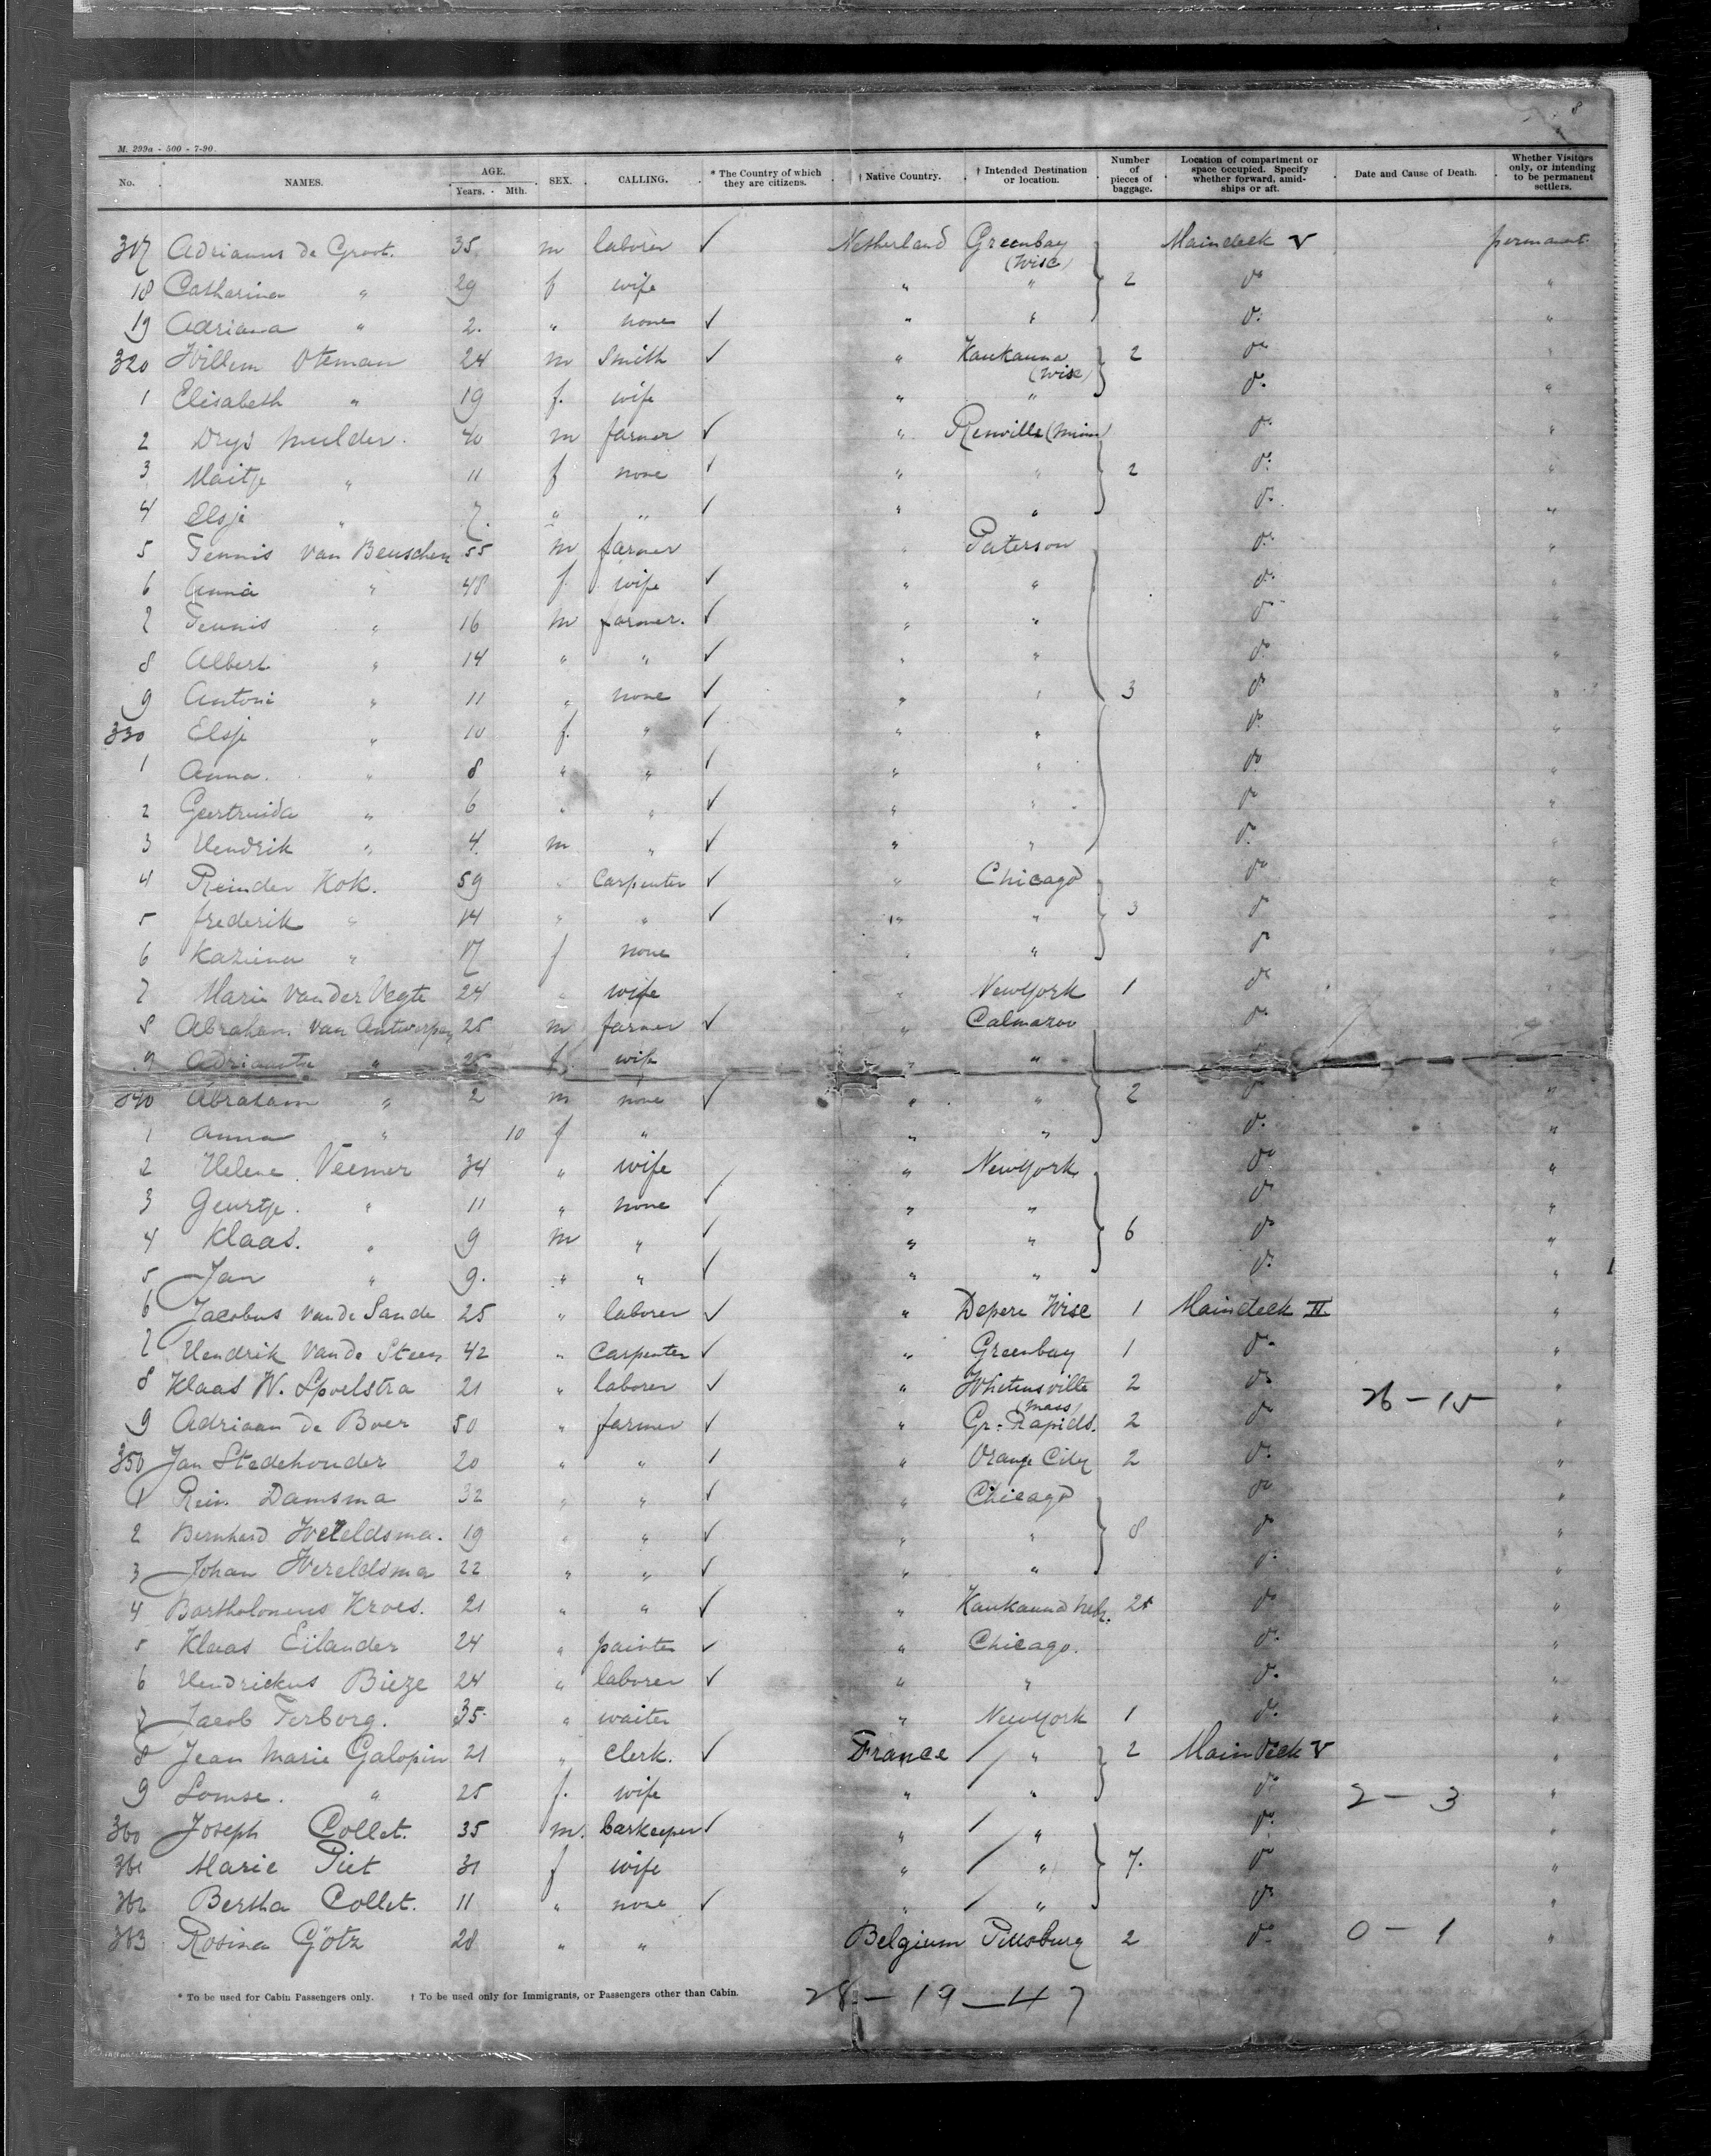 8
M. 299a - 500 - 7-90.
No. NAMES. AGE. Years. Mth. SEX. CALLING. * The Country of which they are citizens. † Native Country. † Intended Destination or location. Number of pieces of baggage. Location of compartment or space occupied. Specify whether forward, amidships or aft. Date and Cause of Death. Whether Visitors only, or intending to be permanent settlers.
317 Adrianus de Groot. 35 m laborer ✓ Netherland Greenbay (Wisc) Maindeck V permanent
18 Catharina " 29 f wife " " 2 do "
19 Adriana " 2. " none ✓ " " do "
320 Willem Oteman 24 m Smith ✓ " Kaukauna (Wisc) 2 do "
1 Elisabeth " 19 f. wife " " do "
2 Drys Mulder. 40 m farmer ✓ " Renville (Minn) do "
3 Maitje " 11 f none ✓ " " 2 do "
4 Elsje " 7. " " ✓ " " do "
5 Teunis van Beuschem 55 m farmer " Paterson do "
6 Anna " 48 f. wife ✓ " " do "
7 Teunis " 16 m farmer. ✓ " " do "
8 Albert " 14 " " ✓ " " do "
9 Antoni " 11 " none ✓ " " 3 do "
330 Elsje " 10 f. " ✓ " " do "
1 Anna. " 8 " " ✓ " " do "
2 Geertruida " 6 " " ✓ " " do "
3 Hendrik " 4. m " ✓ " " do "
4 Reinder Kok. 59 " Carpenter ✓ " Chicago do "
5 frederik " 14 " " ✓ " " 3 do "
6 Kaziena " 17 f none " " do "
7 Marie van der Vegte 24 " wife " New York 1 do "
8 Abraham van Antwerpen 25 m farmer ✓ " Calmazoo do
9 Adriaantje " 25 f. wife " "
340 Abraham " 2 m none ✓ " " 2 do "
1 Anna " 10 f " " " do "
2 Helene Veemer 34 " wife " New York do "
3 Geurtje. " 11 " none ✓ " " do "
4 Klaas. " 9 m " ✓ " " 6 do "
5 Jan " 9. " " ✓ " " do "
6 Jacobus van de Sande 25 " laborer ✓ " Depere Wisc 1 Maindeck II "
7 Hendrik van de Steen 42 " Carpenter ✓ " Greenbay 1 do "
8 Klaas W. Spoelstra 21 " laborer ✓ " Whitinsville (Mass) 2 do 26 - 15 "
9 Adriaan de Boer 50 " farmer ✓ " Gr. Rapids. 2 do "
350 Jan Stedehouder 20 " " ✓ " Orange City 2 do "
1 Rein Damsma 32 " " ✓ " Chicago do "
2 Bernhard Wereldsma. 19 " " ✓ " " 8 do "
3 Johan Wereldsma 22 " " ✓ " " do "
4 Bartholomeus Kroes. 21 " " ✓ " Kaukauna Neb. 2 do "
5 Klaas Eilander 24 " painter ✓ " Chicago. do "
6 Hendrickus Bieze 24 " laborer ✓ " " do "
7 Jacob Terborg. 35 " waiter " New York 1 do "
8 Jean Marie Galopin 21 " Clerk. ✓ France " 2 Maindeck V "
9 Louise. " 25 f. wife " " do 2 - 3 "
360 Joseph Collet. 35 m. barkeeper ✓ " " do "
361 Marie Piet 31 f wife " " 7. do "
362 Bertha Collet. 11 " none ✓ " " do "
363 Rosina Götz 28 " " Belgium Pittsburg 2 do 0 - 1 "
* To be used for Cabin Passengers only. † To be used only for Immigrants, or Passengers other than Cabin.
28 - 19 - 47